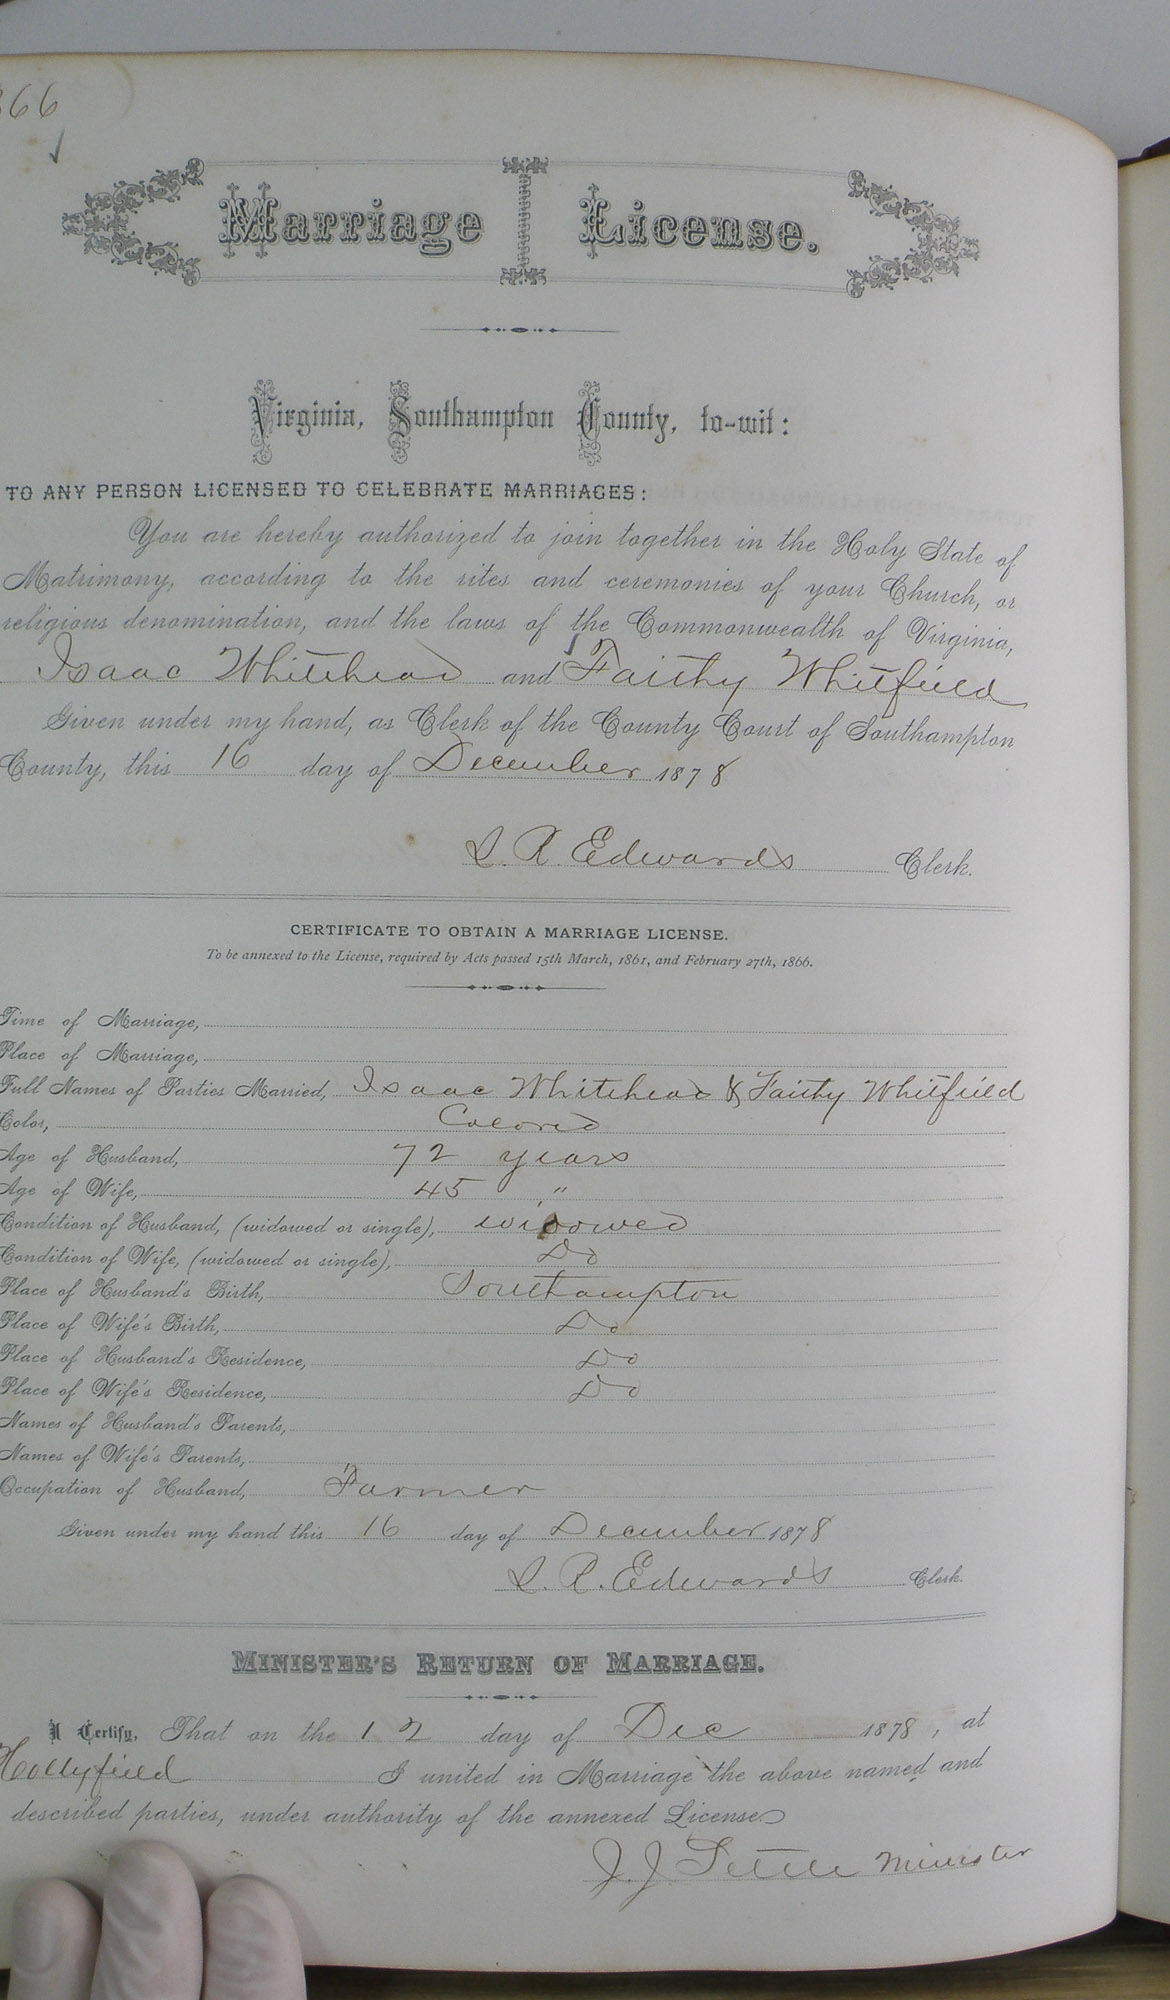 366
Marriage License.
Virginia, Southampton County, to-wit:
TO ANY PERSON LICENSED TO CELEBRATE MARRIAGES:
You are hereby authorized to join together in the Holy State of
Matrimony, according to the rites and ceremonies of your Church, or
religious denomination, and the laws of the Commonwealth of Virginia,
Isaac Whitehead and Faithy Whitfield
Given under my hand, as Clerk of the County Court of Southampton
County, this 16 day of December 1878
L. R. Edwards Clerk.
CERTIFICATE TO OBTAIN A MARRIAGE LICENSE.
To be annexed to the License, required by Acts passed 15th March, 1861, and February 27th, 1866.
Time of Marriage,
Place of Marriage,
Full Names of Parties Married, Isaac Whitehead & Faithy Whitfield
Color, Colored
Age of Husband, 72 years
Age of Wife, 45 "
Condition of Husband, (widowed or single), widowed
Condition of Wife, (widowed or single), Do
Place of Husband's Birth, Southampton
Place of Wife's Birth, Do
Place of Husband's Residence, Do
Place of Wife's Residence, Do
Names of Husband's Parents,
Names of Wife's Parents,
Occupation of Husband, Farmer
Given under my hand this 16 day of December 1878
L. R. Edwards Clerk.
MINISTER'S RETURN OF MARRIAGE.
I Certify, That on the 12 day of Dec 1878, at
Hollyfield I united in Marriage the above named and
described parties, under authority of the annexed License.
J. J. Settle Minister